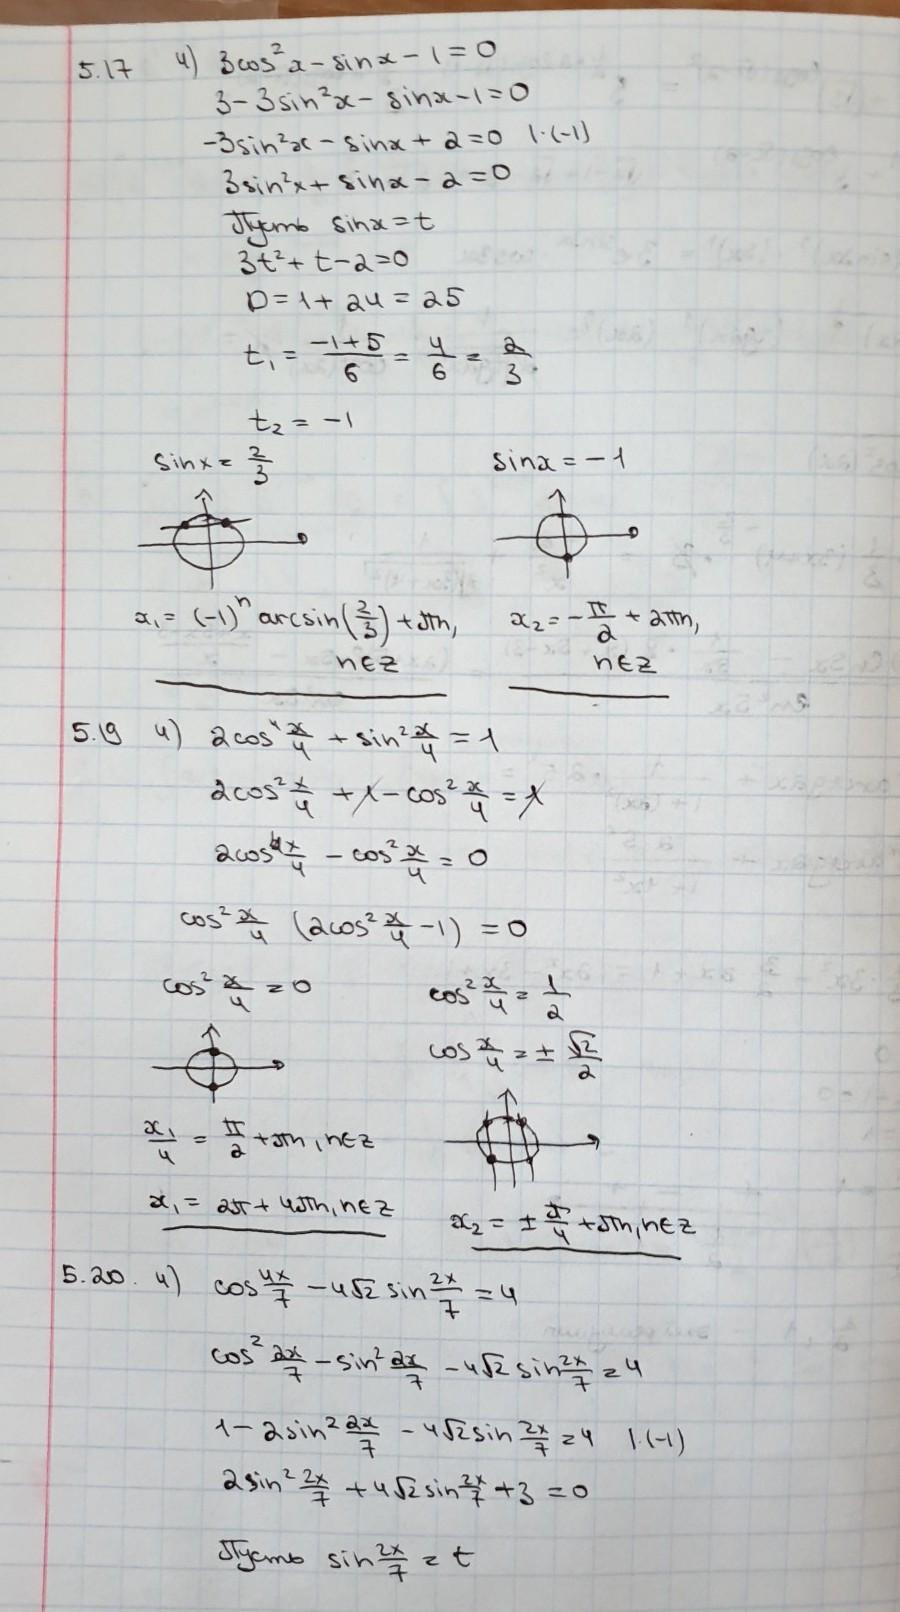 5.17 4) 3cos²x - sinx - 1 = 0
3 - 3sin²x - sinx - 1 = 0
-3sin²x - sinx + 2 = 0 |·(-1)
3sin²x + sinx - 2 = 0
Пусть sinx = t
3t² + t - 2 = 0
D = 1 + 24 = 25
t₁ = (-1+5)/6 = 4/6 = 2/3
t₂ = -1
sinx = 2/3 sinx = -1
x₁ = (-1)ⁿ arcsin(2/3) + πn, x₂ = -π/2 + 2πn,
n∈Z n∈Z
5.19 4) 2cos⁴ x/4 + sin² x/4 = 1
2cos² x/4 + 1 - cos² x/4 = 1
2cos⁴ x/4 - cos² x/4 = 0
cos² x/4 (2cos² x/4 - 1) = 0
cos² x/4 = 0 cos² x/4 = 1/2
cos x/4 = ± √2/2
x₁/4 = π/2 + πn, n∈Z
x₁ = 2π + 4πn, n∈Z x₂ = ± π/4 + πn, n∈Z
5.20. 4) cos 4x/7 - 4√2 sin 2x/7 = 4
cos² 2x/7 - sin² 2x/7 - 4√2 sin 2x/7 = 4
1 - 2sin² 2x/7 - 4√2 sin 2x/7 = 4 |·(-1)
2sin² 2x/7 + 4√2 sin 2x/7 + 3 = 0
Пусть sin 2x/7 = t